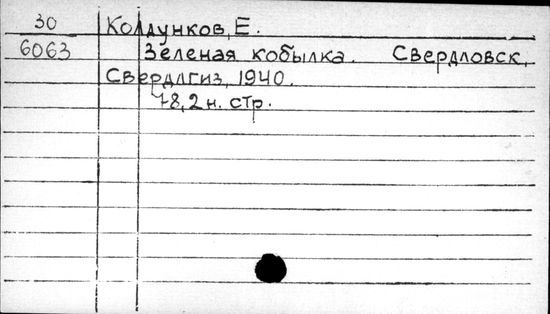 30 Колдунков, Е.
6063 Зеленая кобылка. Свердловск,
Свердлгиз, 1940.
78, 2 н. стр.